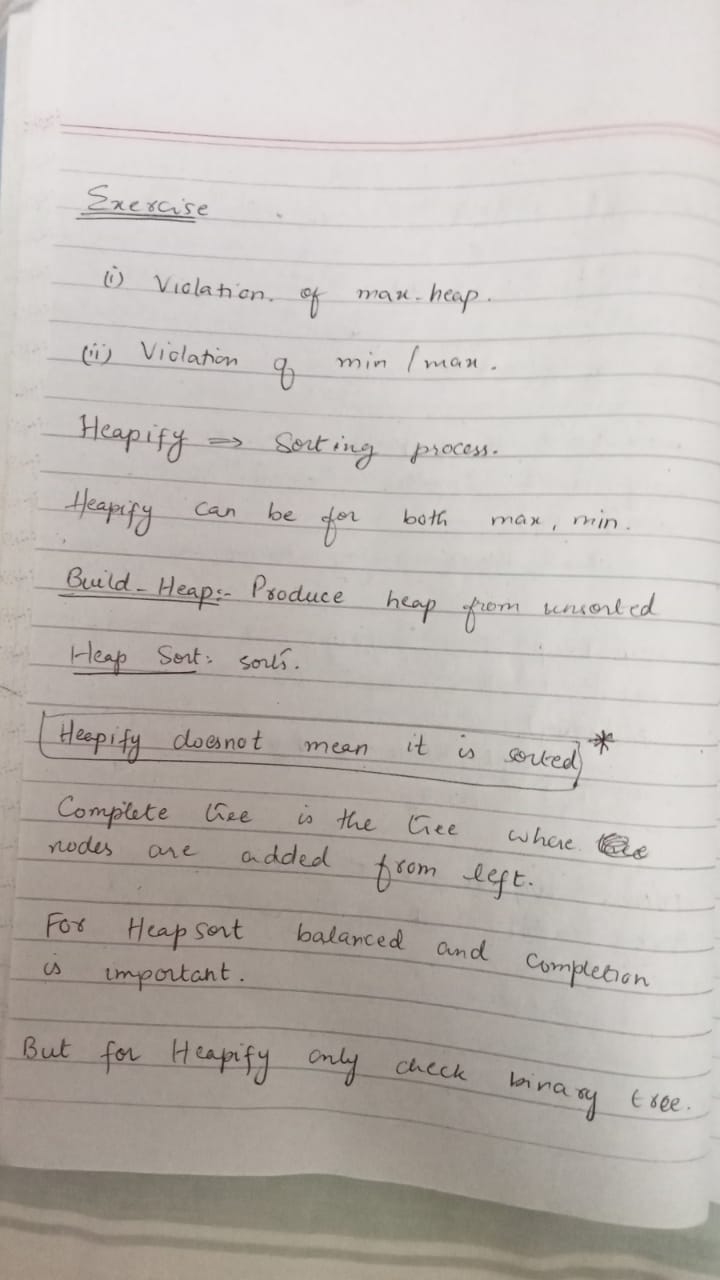 Exercise
(i) Violation. of max-heap.
(ii) Violation of min / max.
Heapify => Sorting process.
Heapify can be for both max, min.
Build-Heap:- Produce heap from unsorted
Heap Sort: sorts.
Heapify doesnot mean it is sorted *
Complete tree is the tree where
nodes are added from left.
For Heapsort balanced and completion
is important.
But for Heapify only check binary tree.